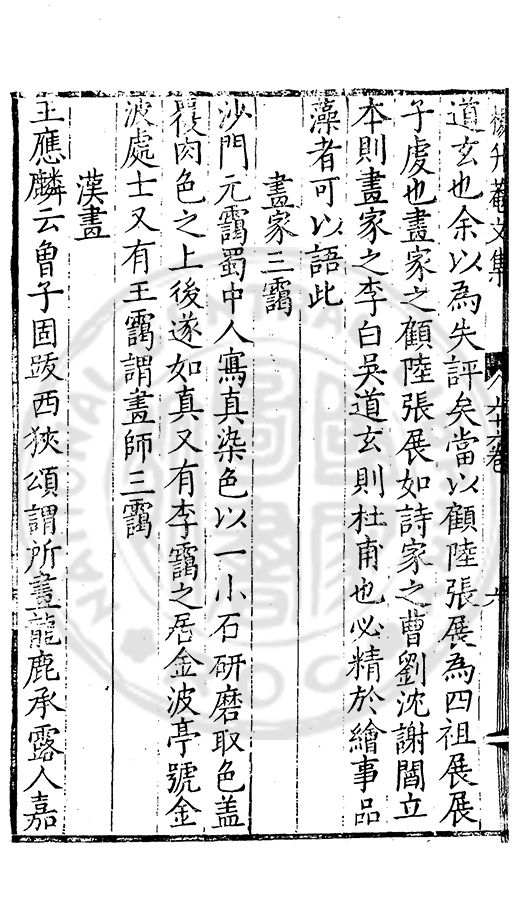 楊升菴文集 六十六卷 六
道玄也余以為失評矣當以顧陸張展為四祖展展
子虔也畫家之顧陸張展如詩家之曹劉沈謝閻立
本則畫家之李白吳道玄則杜甫也必精於繪事品
藻者可以語此
畫家三靄
沙門元靄蜀中人寫真染色以一小石研磨取色盖
覆肉色之上後遂如真又有李靄之居金波亭號金
波處士又有王靄謂畫師三靄
漢畫
王應麟云曾子固跋西狹頌謂所畫龍鹿承露人嘉